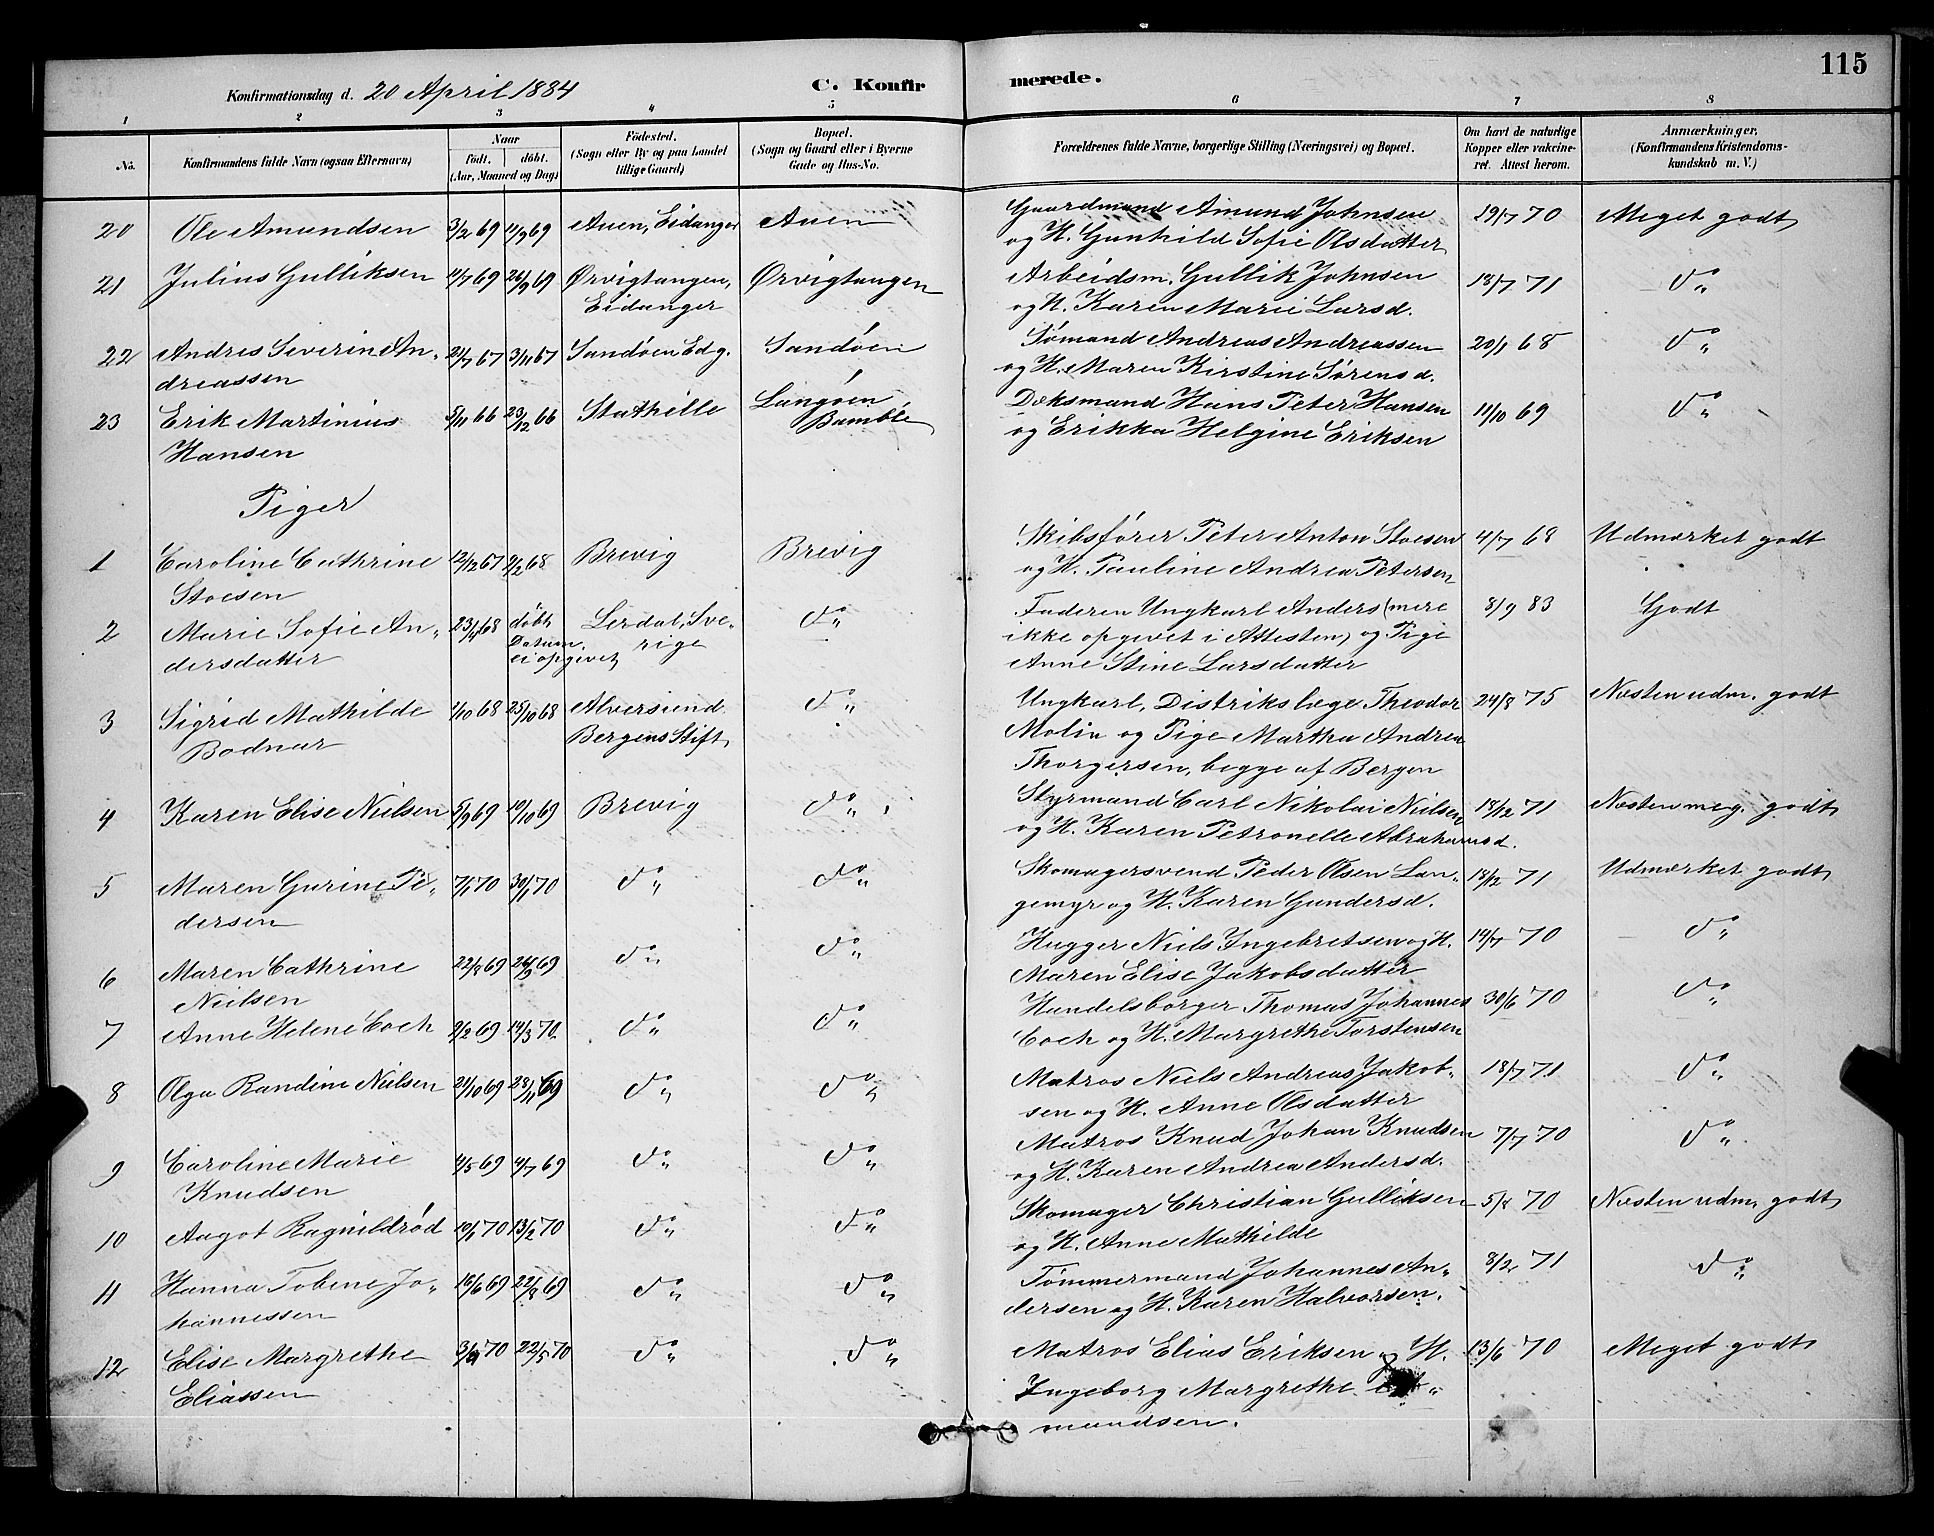 115
Konfirmationsdag d. 20 April 1884
C. Konfir merede.
1 2 3 4 5 6 7 8
No.
Konfirmandens fulde Navn (ogsaa Efternavn)
Naar
født. døbt.
(Aar, Maaned og Dag)
Födested.
(Sogn eller By og paa Landet
tillige Gaard)
Bopæl.
(Sogn og Gaard eller i Byerne
Gade og Hus-No.
Forældrenes fulde Navne, borgerlige Stilling (Næringsvei) og Bopæl.
Om havt de naturlige
Kopper eller vakcine-
ret. Attest herom.
Anmærkninger.
(Konfirmandens Kristendoms-
kundskab m. V.)
20 Ole Amundsen 3/2 69 11/9 69 Auen, Eidanger Auen Gaardmand Amund Johnsen 19/7 70 Meget godt
og H. Gunhild Sofie Olsdatter
21 Julius Gulliksen 11/7 69 26/9 69 Ørvigtangen, Ørvigtangen Arbeidsm. Gullik Johnsen 18/7 71 do
Eidanger og H. Karen Marie Larsd.
22 Andreas Severin An- 21/7 67 3/11 67 Sandøen Edg. Sandøen Sømand Andreas Andreassen 20/1 68 do
dreassen og H. Maren Kirstine Sørensd.
23 Erik Martinius 5/11 66 23/12 66 Stathelle Langøen Dæksmand Hans Peter Hansen 11/10 69 do
Hansen Bamble og Erikka Helgine Eriksen
Piger
1 Caroline Cathrine 12/12 67 9/2 68 Brevig Brevig Skibsfører Peter Anton Stoesen 4/7 68 Udmærket godt
Stoesen og H. Pauline Andrea Petersen
2 Marie Sofie An- 23/4 68 døbt Lerdal, Sve- do Faderen Ungkarl Anders (mere 8/9 83 Godt
dersdatter Datum rige ikke opgivet i Attesten) og Pige
ei opgivet Anne Stine Larsdatter
3 Sigrid Mathilde 1/10 68 25/10 68 Alversund do Ungkarl, Distriktslæge Theodor 24/8 75 Næsten udm. godt
Bodnar Bergens Stift Molin og Pige Martha Andrea
Thorgersen, begge af Bergen
4 Karen Elise Nielsen 5/9 69 10/10 69 Brevig do Styrmand Carl Nikolai Nielsen 18/12 71 Næsten meg. godt
og H. Karen Petronelle Abrahamsd.
5 Maren Gurine Pe- 7/1 70 30/1 70 do do Skomagersvend Peder Olsen Lan- 18/12 71 Udmærket godt
dersen gemyr og H. Karen Gundersd.
6 Maren Cathrine 22/8 69 26/9 69 do do Hugger Niels Ingebretsen og H. 14/7 70 do
Nielsen Maren Elise Jakobsdatter
7 Anne Helene Coch 9/2 69 14/3 70 do do Handelsborger Thomas Johannes 30/6 70 do
Coch og H. Margrethe Torstensen
8 Olga Randine Nielsen 21/10 69 28/11 69 do do Matros Niels Andreas Jakob- 18/7 71 do
sen og H. Anne Olsdatter
9 Caroline Marie 4/5 69 4/7 69 do do Matros Knud Johan Knudsen 7/7 70 do
Knudsen og H. Karen Andrea Andersd.
10 Aagot Ragnildrød 10/1 70 13/2 70 do do Skomager Christian Gulliksen 5/8 70 Næsten udm. godt
og H. Anne Mathilde
11 Hanna Tobene Jo- 16/6 69 22/8 69 do do Tømmermand Johannes An- 8/2 71 do
hannessen dersen og H. Karen Halvorsen.
12 Elise Margrethe 3/4 70 22/5 70 do do Matros Elias Eriksen og H. 13/6 70 Meget godt
Eliassen Ingeborg Margrethe
mundsen.